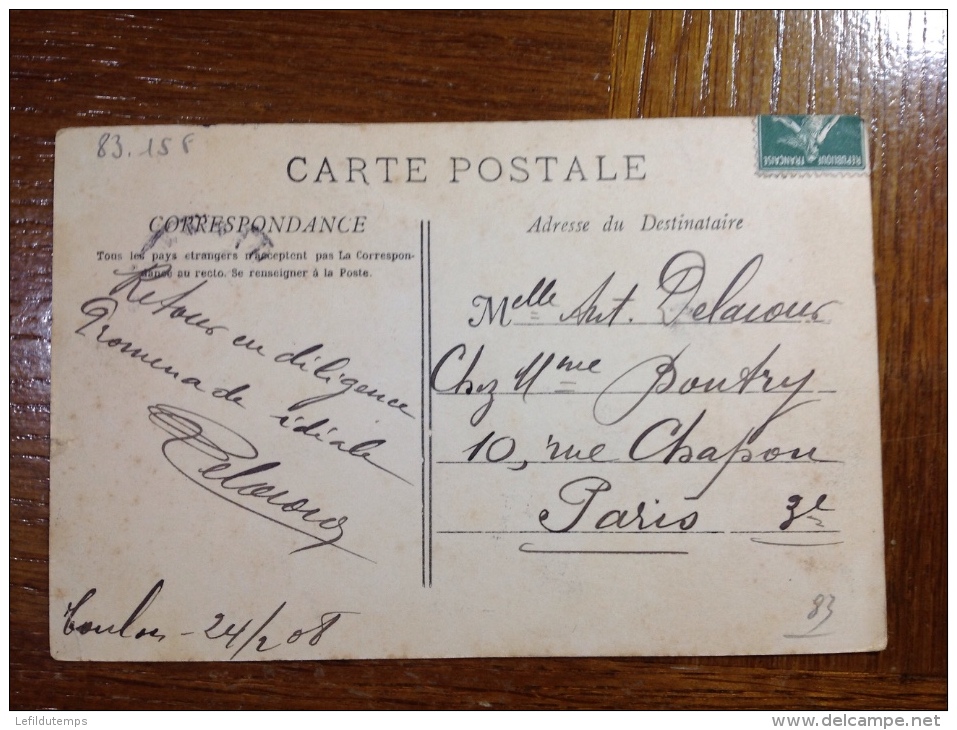 83.158
CARTE POSTALE
RÉPUBLIQUE FRANÇAISE
CORRESPONDANCE
Tous les pays étrangers n'acceptent pas La Correspon-
dance au recto. Se renseigner à la Poste.
Retour en diligence
Promenade idéale
Delacour
Toulon - 24/2 08
Adresse du Destinataire
Melle Ant. Delacour
Chez Mme Doutry
10, rue Chapon
Paris 3e
83
Lefildutemps
www.delcampe.net